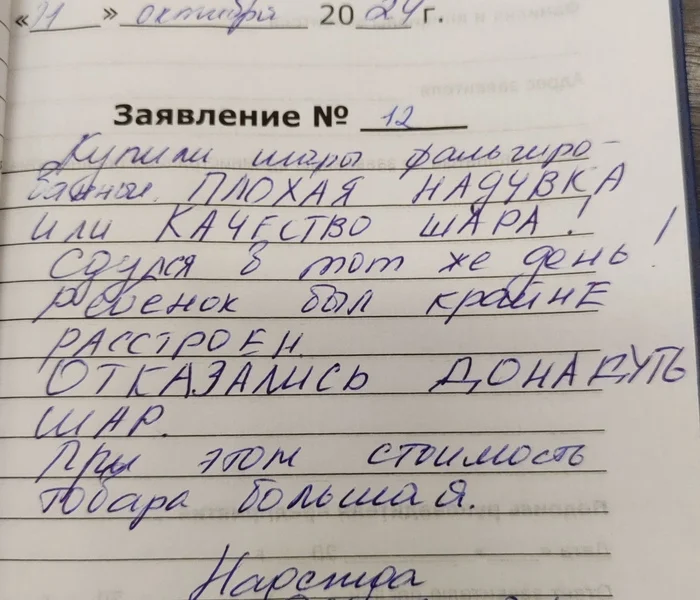 «21» октября 2024 г.
Заявление № 12
Купили шары фальгиро-
ванные. ПЛОХАЯ НАДУВКА
ИЛИ КАЧЕСТВО ШАРА!
Сдулся в тот же день!
РЕБЕНОК был крайнЕ
РАССТРОЕН.
ОТКАЗАЛИСЬ ДОНАДУТЬ
ШАР.
При этом стоимость
товара большая.